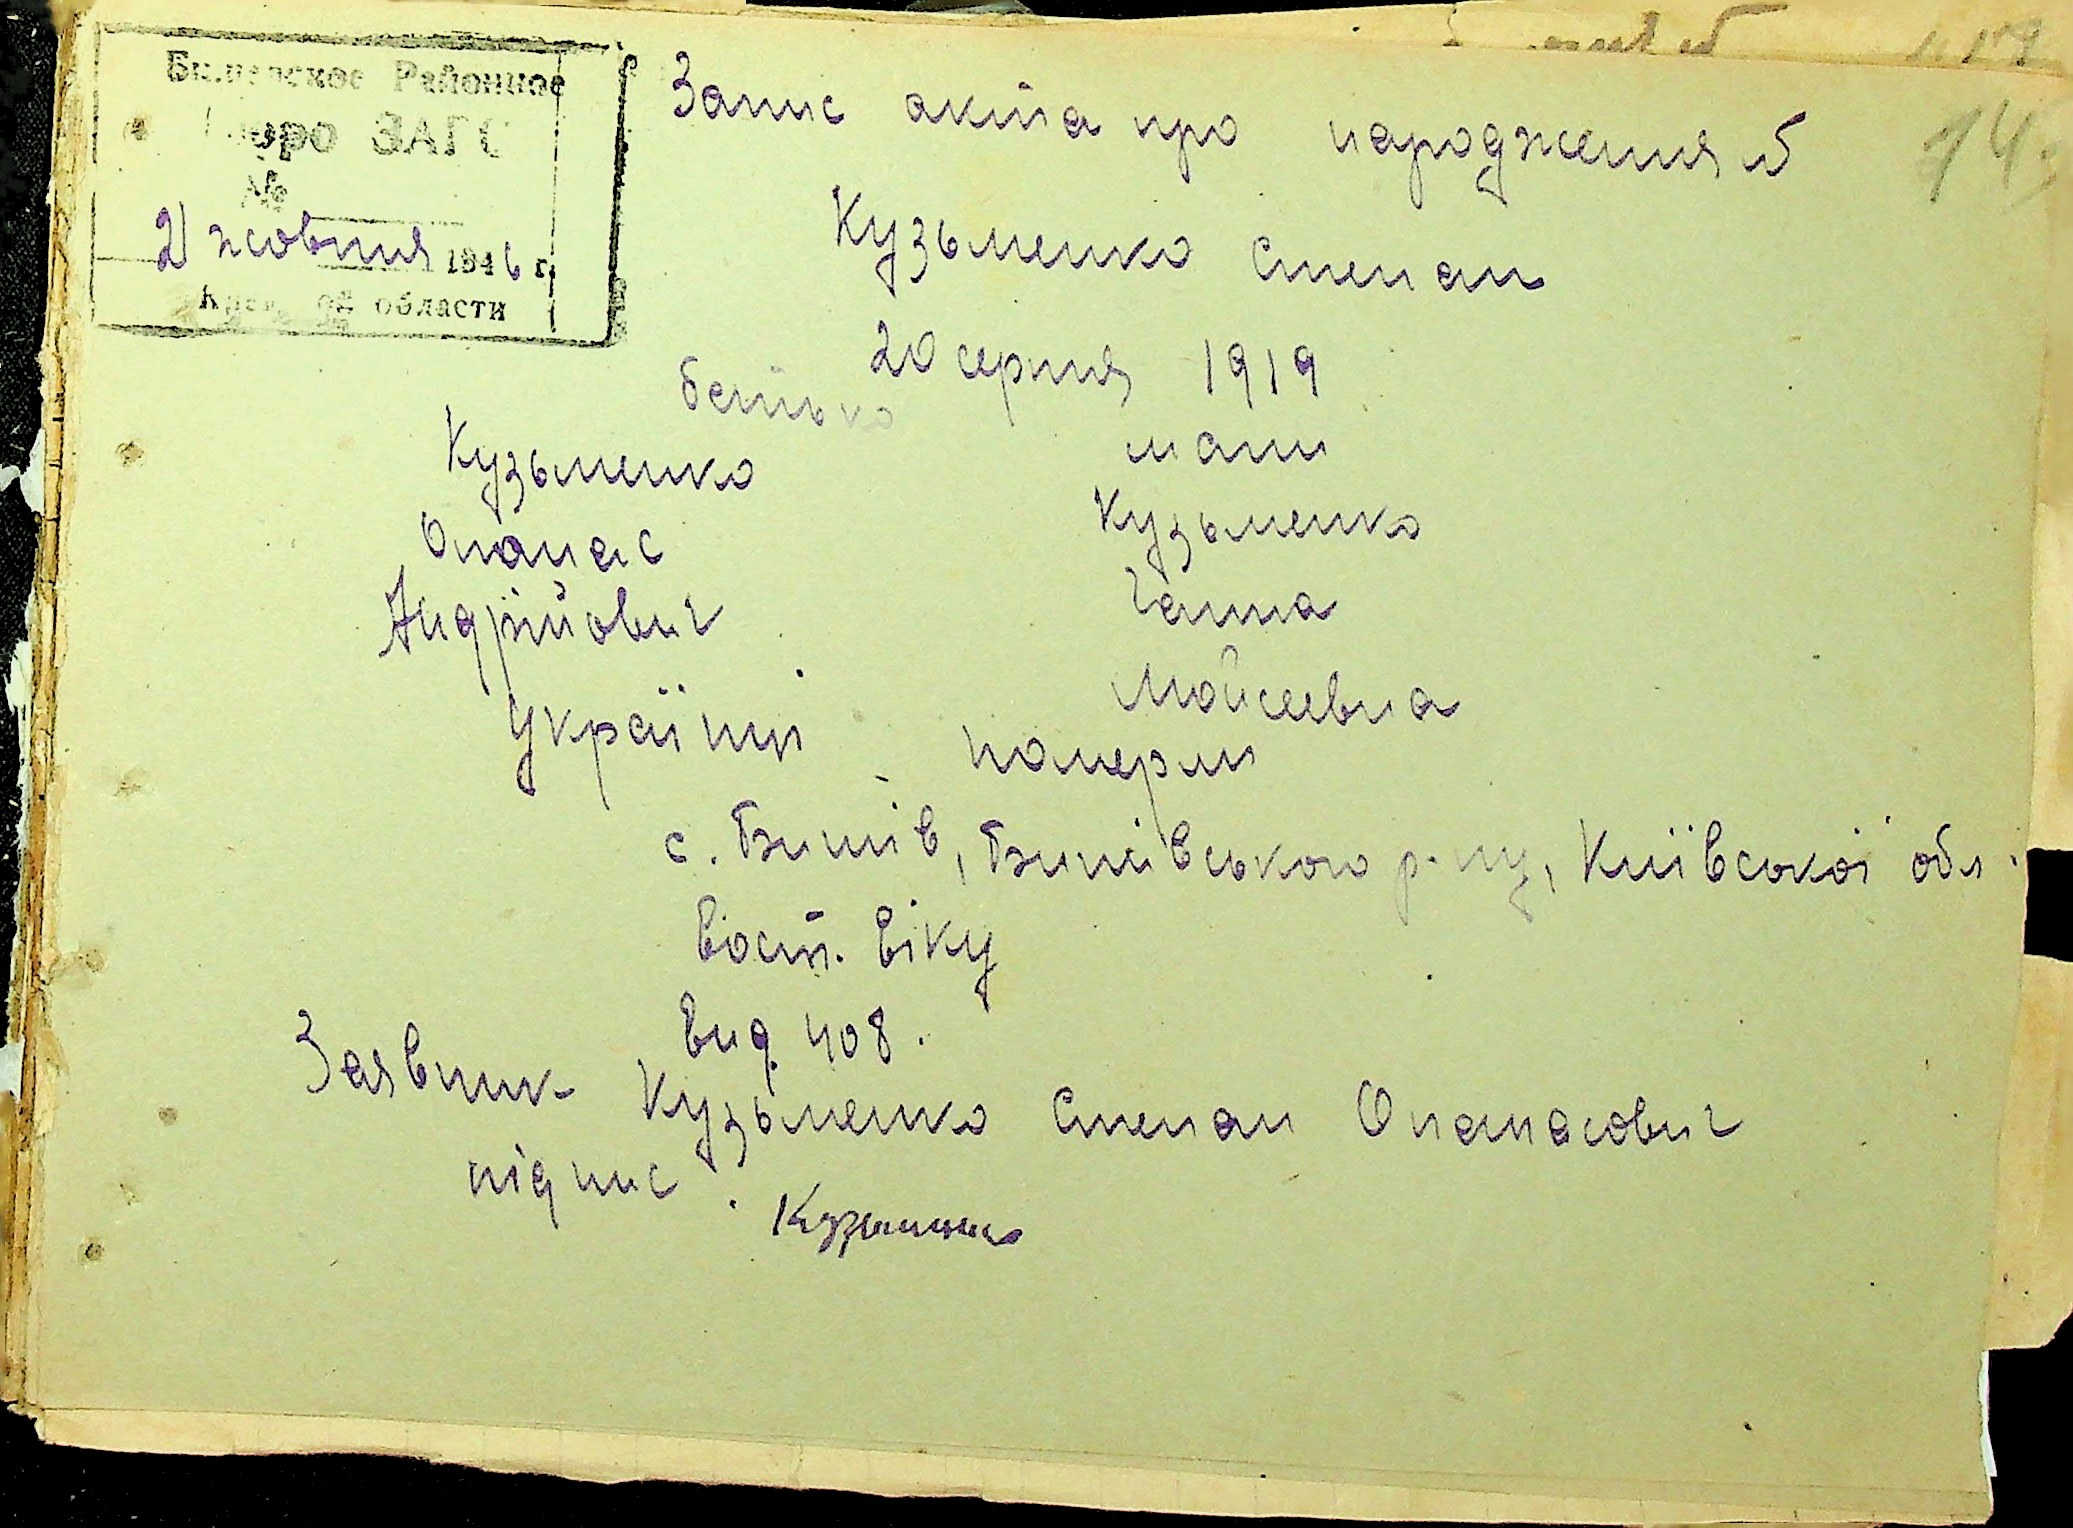 Районное
бюро ЗАГС
№
21 жовтня 1946 г.
области
14
Запис акта про народження
Кузьменко Степан
20 серпня 1919
батько
мати
Кузьменко
Опанас
Андрійович
Кузьменко
Ганна
Мойсеевна
Українці
померли
с. Бишів, Бишівського р-ну, Київської обл.
Вост. віку
Вид. 408.
Заявник - Кузьменко Степан Опанасович
підпис. Кузьменко